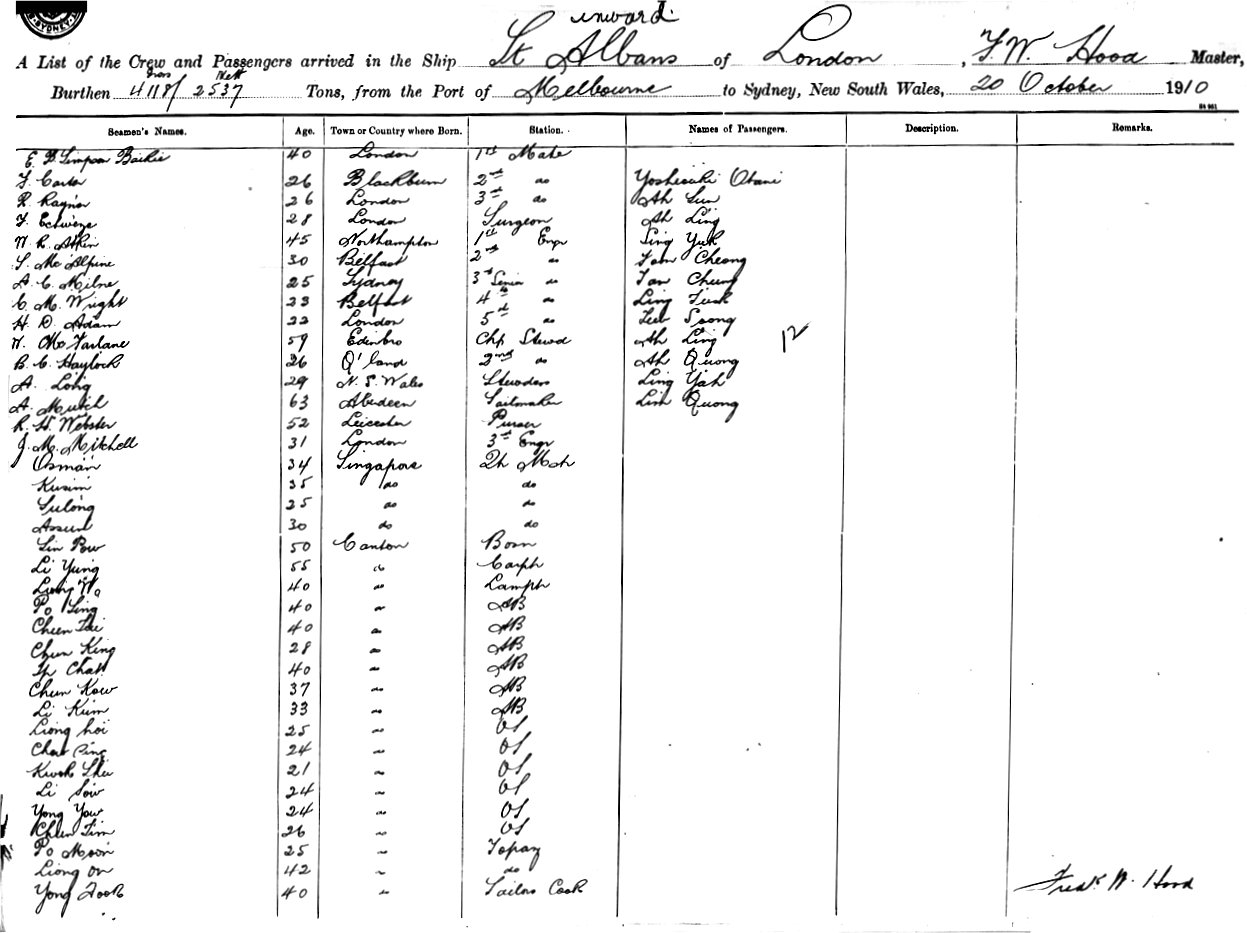 SYDNEY
inward
A List of the Crew and Passengers arrived in the Ship St Albans of London, F. W. Hood Master,
Burthen Gros 4118/ Nett 2537 Tons, from the Port of Melbourne to Sydney, New South Wales, 20 October 1910
Seamen's Names. Age. Town or Country where Born. Station. Names of Passengers. Description. Remarks.
E. B. Simpson Baikie 40 London 1st Mate
F. Carter 26 Blackburn 2nd do Yoshisuki Otani
R. Raynor 26 London 3rd do Ah Sun
F. 28 London Surgeon Ah Ling
W. R. Atkin 45 Northampton 1st Engr Sing Yuk
S. McAlpine 30 Belfast 2nd " Fam Cheong
A. C. Milne 25 Sydney 3rd Senior do Tan Chung
C. M. Wright 23 Belfast 4th do Ling
H. D. Adam 22 London 5th do Soong
W. McFarlane 59 Edinbro Chf Stewd Ah Ling
12
B. C. Haylock 26 Q'land 2nd do Ah Quong
A. Long 29 N. S. Wales Stewdess Ling Yah
A. Mutch 63 Aberdeen Sailmaker Lim Quong
R. H. Webster 52 Leicester Purser
J. M. Mitchell 31 London 3rd Engr
Osman 34 Singapore
Kusim 35 do do
Sulong 25 do do
30 do do
Lin Pow 50 Canton Bosn
Li Yung 55 do Carptr
40 " Lamptr
Po Sing 40 " AB
Cheen Tai 40 " AB
Chun King 28 " AB
40 " AB
Chun Kow 37 " AB
Li Kum 33 " AB
Liong hoi 25 " OS
24 " OS
Kwok Shu 21 " OS
Li Sow 24 " OS
Yong Yow 24 " OS
Chun Tim 26 " OS
Po Moon 25 " Topaz
Liong on 42 " do
Yong Fook 40 " Sailors Cook
Fredk W. Hood